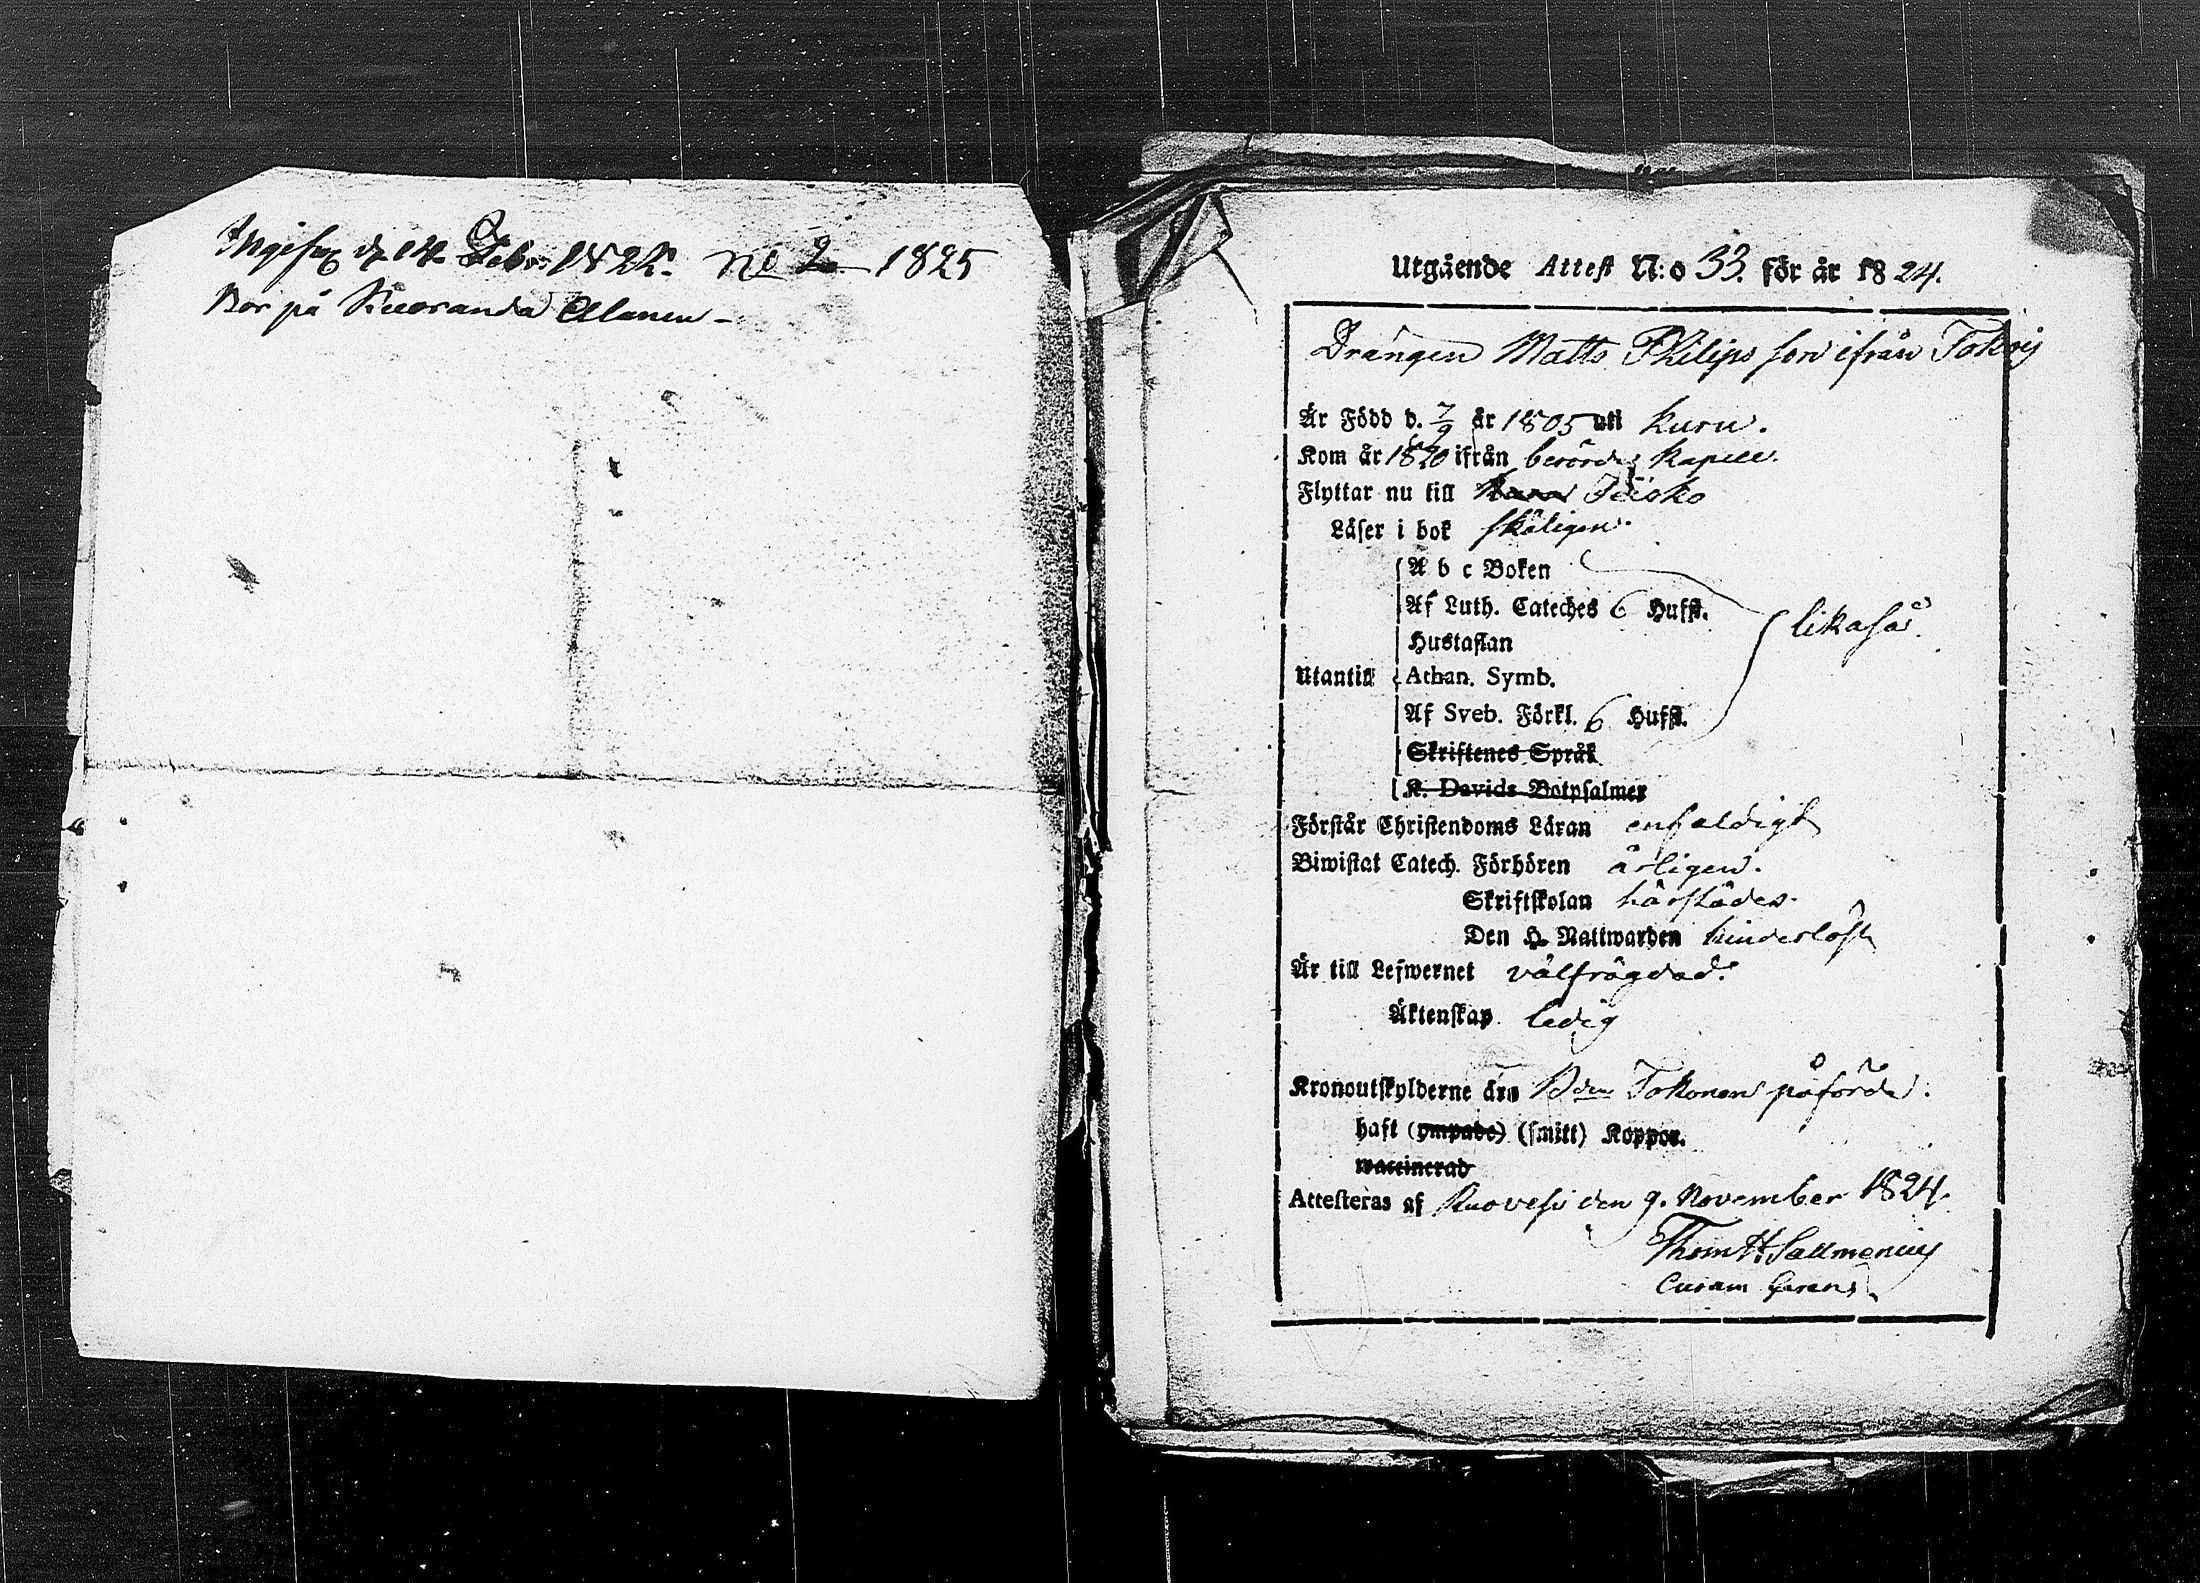 Ingifv d. 14 Febr. 1825. No 2 1825
Bor på Kuoranda Alanen -
Utgående Attest N:o 33. för år 1824.
Drängen Matts Philips son ifrån Tokoij
Är Född d. 7/9 år 1805 uti Kuru.
Kom år 1820 ifrån berörde Kapell.
Flyttar nu till Teisko
Läser i bok skäligen.
A b c Boken
Af Luth. Cateches 6 Hufst.
likaså
Hustaflan
Utantill Athan. Symb.
Af Sveb. Förkl. 6 Hufst.
Skriftenes Språk
K. Davids Botpsalmer
Förstår Christendoms Läran enfaldigt
Biwistat Catech. Förhören årligen.
Skriftskolan härstädes.
Den H. Nattwarden hinderlöst
Är till Lefwernet välfrägdad.
Äktenskap ledig
Kronoutskylderne äro Tokonen påförde.
haft (ympade) (smitt) Koppor.
waccinerad
Attesteras af Ruovesi den 9. November 1824.
Thom H. Sallmenius
Curam Gerens